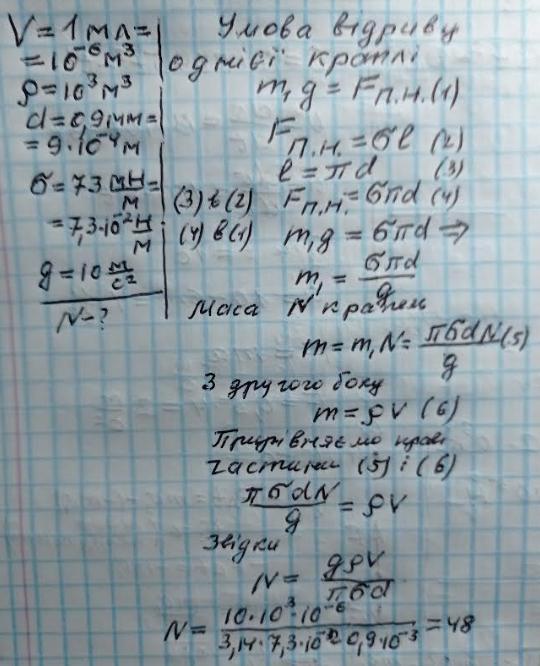 V = 1 мл =
= 10⁻⁶ м³
ρ = 10³ м³
d = 0,9 мм =
= 9·10⁻⁴ м
σ = 73 мН/м =
= 7,3·10⁻² Н/м
g = 10 м/с²
N - ?
Умова відриву
однієї краплі
m₁g = Fп.н. (1)
Fп.н. = σl (2)
l = πd (3)
(3) в (2) Fп.н. = σπd (4)
(4) в (1) m₁g = σπd ⇒
m₁ = σπd/g
Маса N крапель
m = m₁N = πσdN/g (5)
З другого боку
m = ρV (6)
Прирівняємо праві
частини (5) і (6)
πσdN/g = ρV
Звідки
N = gρV/πσd
N = 10·10³·10⁻⁶/3,14·7,3·10⁻²·0,9·10⁻³ = 48